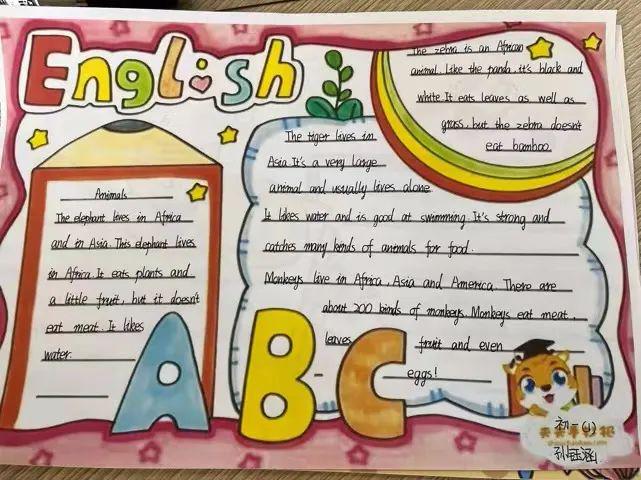 English
Animals
The elephant lives in Africa
and in Asia. This elephant lives
in Africa. It eats plants and
a little fruit, but it doesn't
eat meat. It likes
water.
The tiger lives in
Asia. It's a very large
animal and usually lives alone
It likes water and is good at swimming. It's strong and
catches many kinds of animals for food.
Monkeys live in Africa, Asia and America. There are
about 200 kinds of monkeys. Monkeys eat meat,
leaves fruit and even
eggs!
The zebra is an African
animal. Like the panda, it's black and
white. It eats leaves as well as
grass, but the zebra doesn't
eat bamboo
ABC
初一(1)
孙钰涵